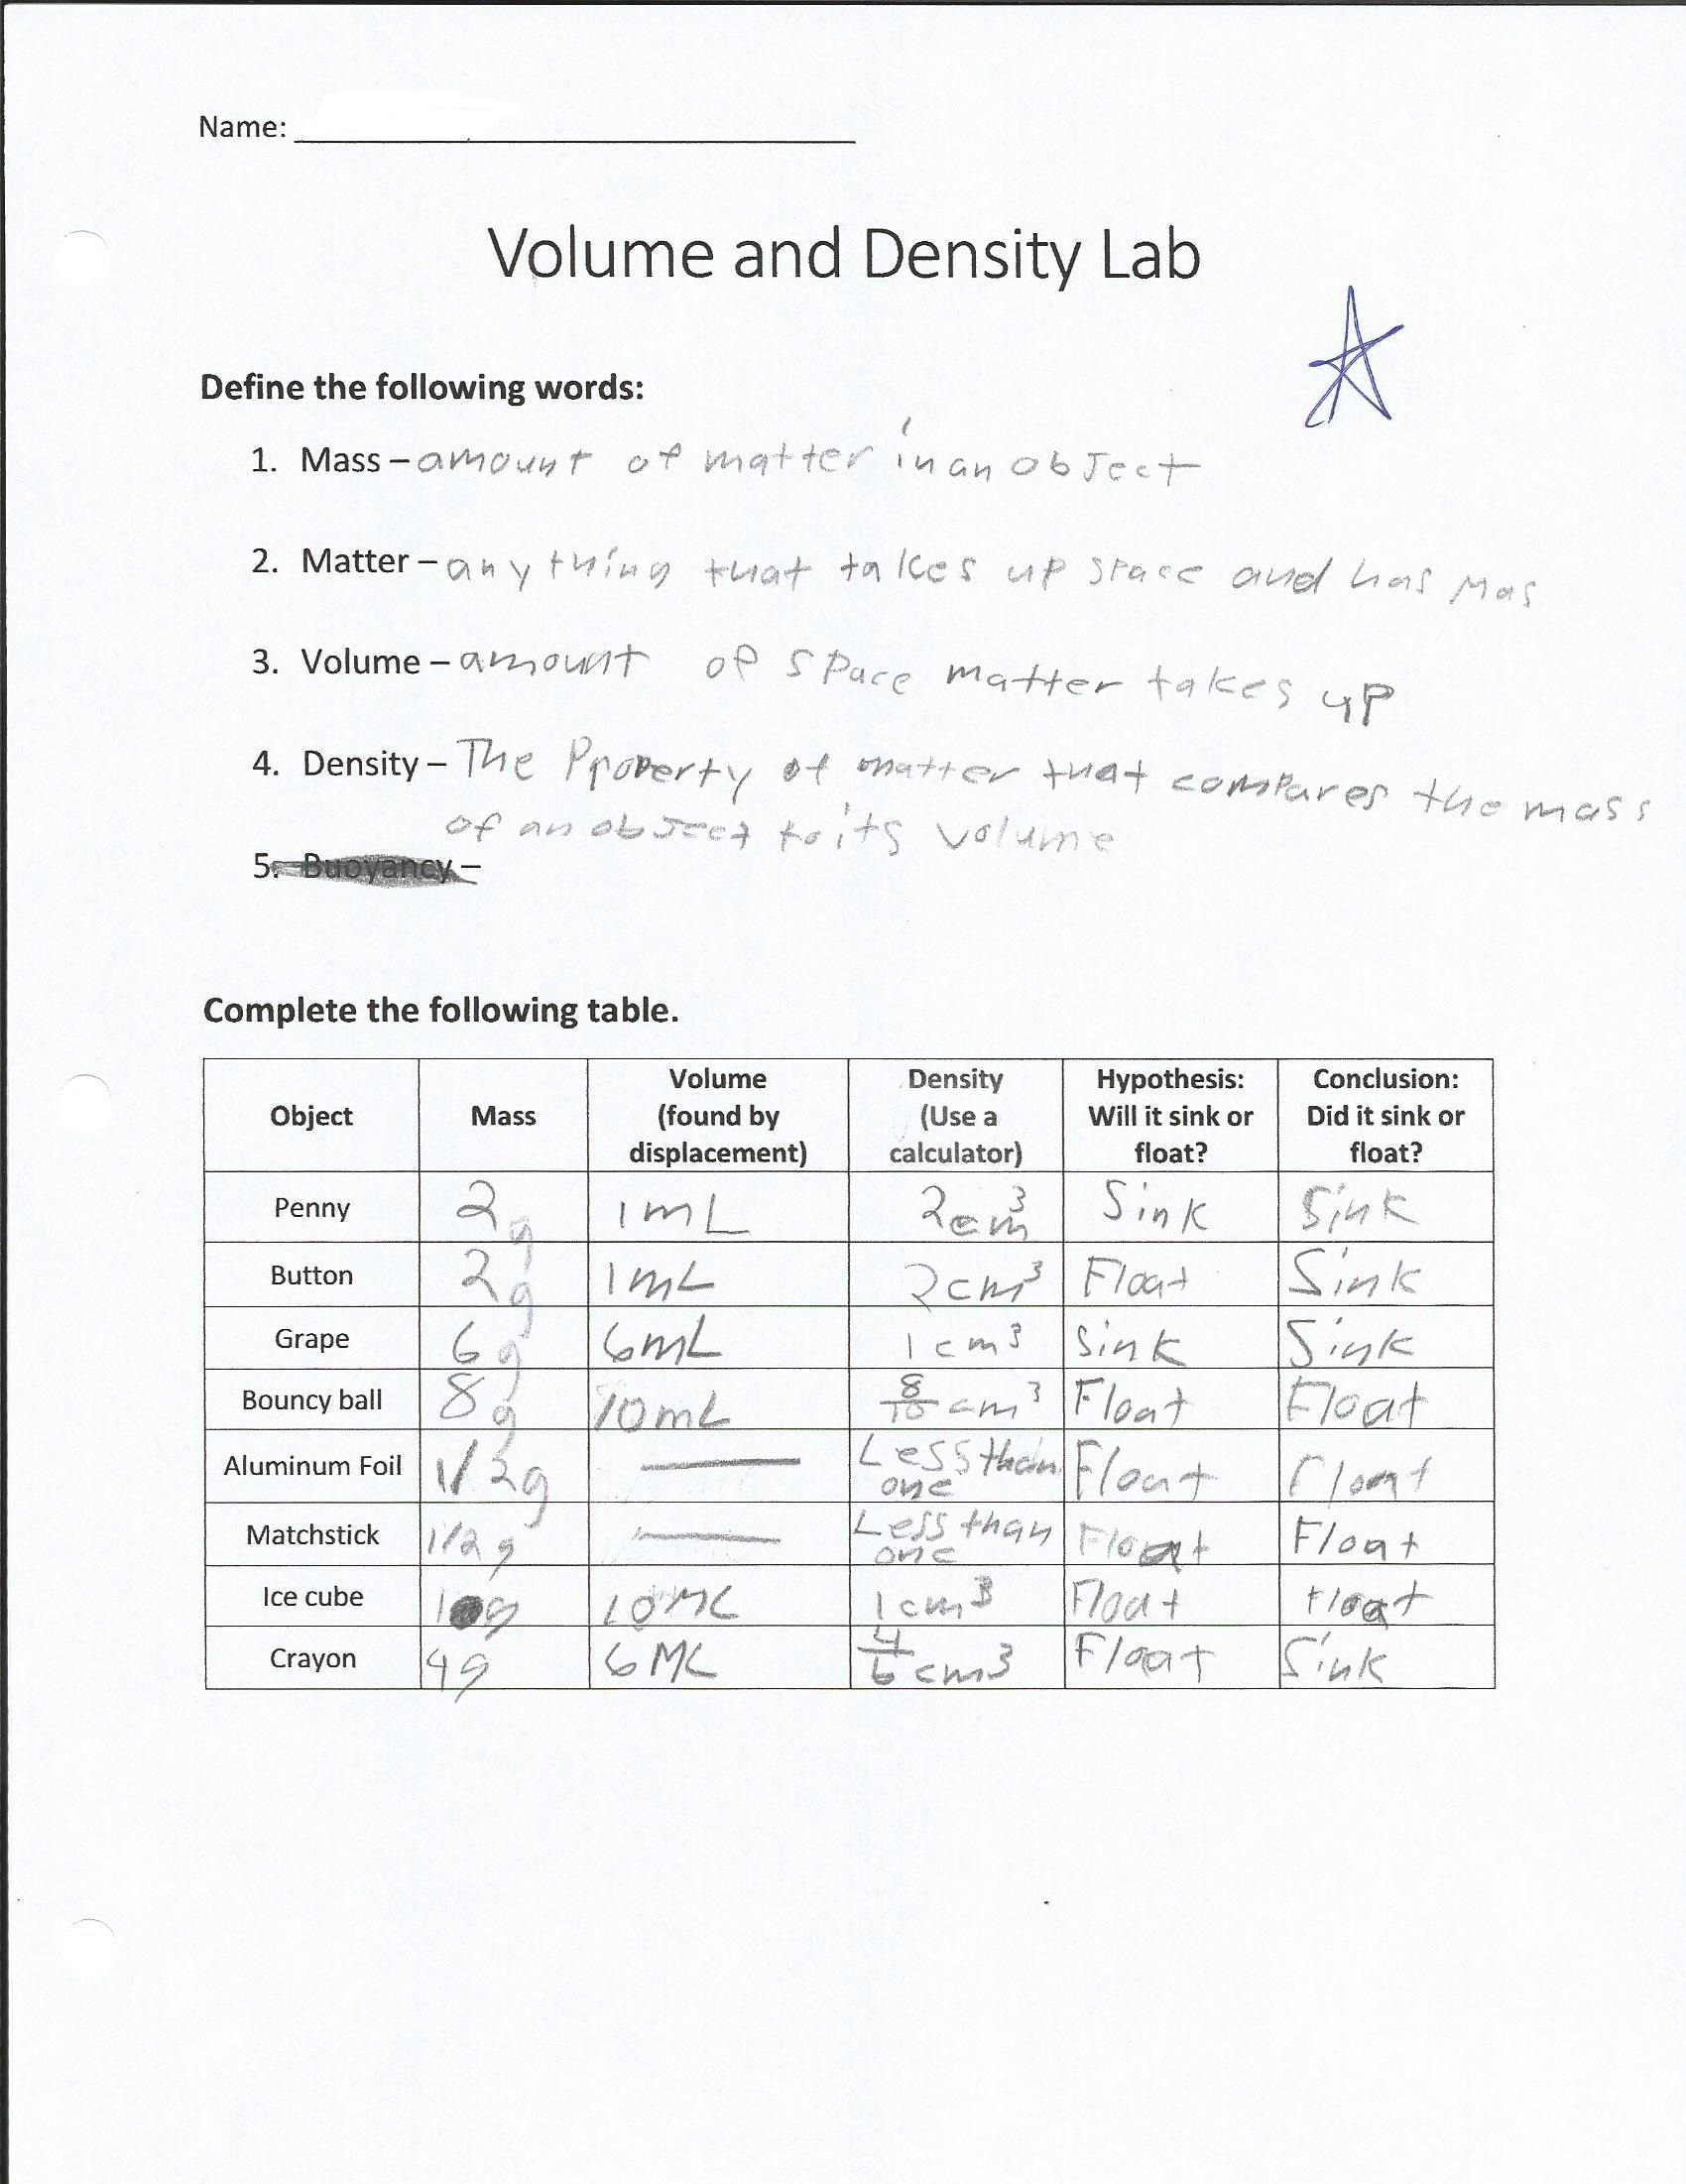 Name:
Volume and Density Lab
Define the following words:
1. Mass – amount of matter in an object
2. Matter – anything that takes up space and has mas
3. Volume – amount of space matter takes up
4. Density – The Property of matter that compares the mass
of an object to its volume
5. Buoyancy –
Complete the following table.
Object Mass Volume (found by displacement) Density (Use a calculator) Hypothesis: Will it sink or float? Conclusion: Did it sink or float?
Penny 2g 1mL 2cm³ Sink Sink
Button 2g 1mL 2cm³ Float Sink
Grape 6g 6mL 1cm³ Sink Sink
Bouncy ball 8g 10mL 8/10 cm³ Float Float
Aluminum Foil 1/2g — Less than one Float Float
Matchstick 1/2g — Less than one Float Float
Ice cube 10ML 1cm³ Float Float
Crayon 4g 6ML 4/6 cm³ Float Sink